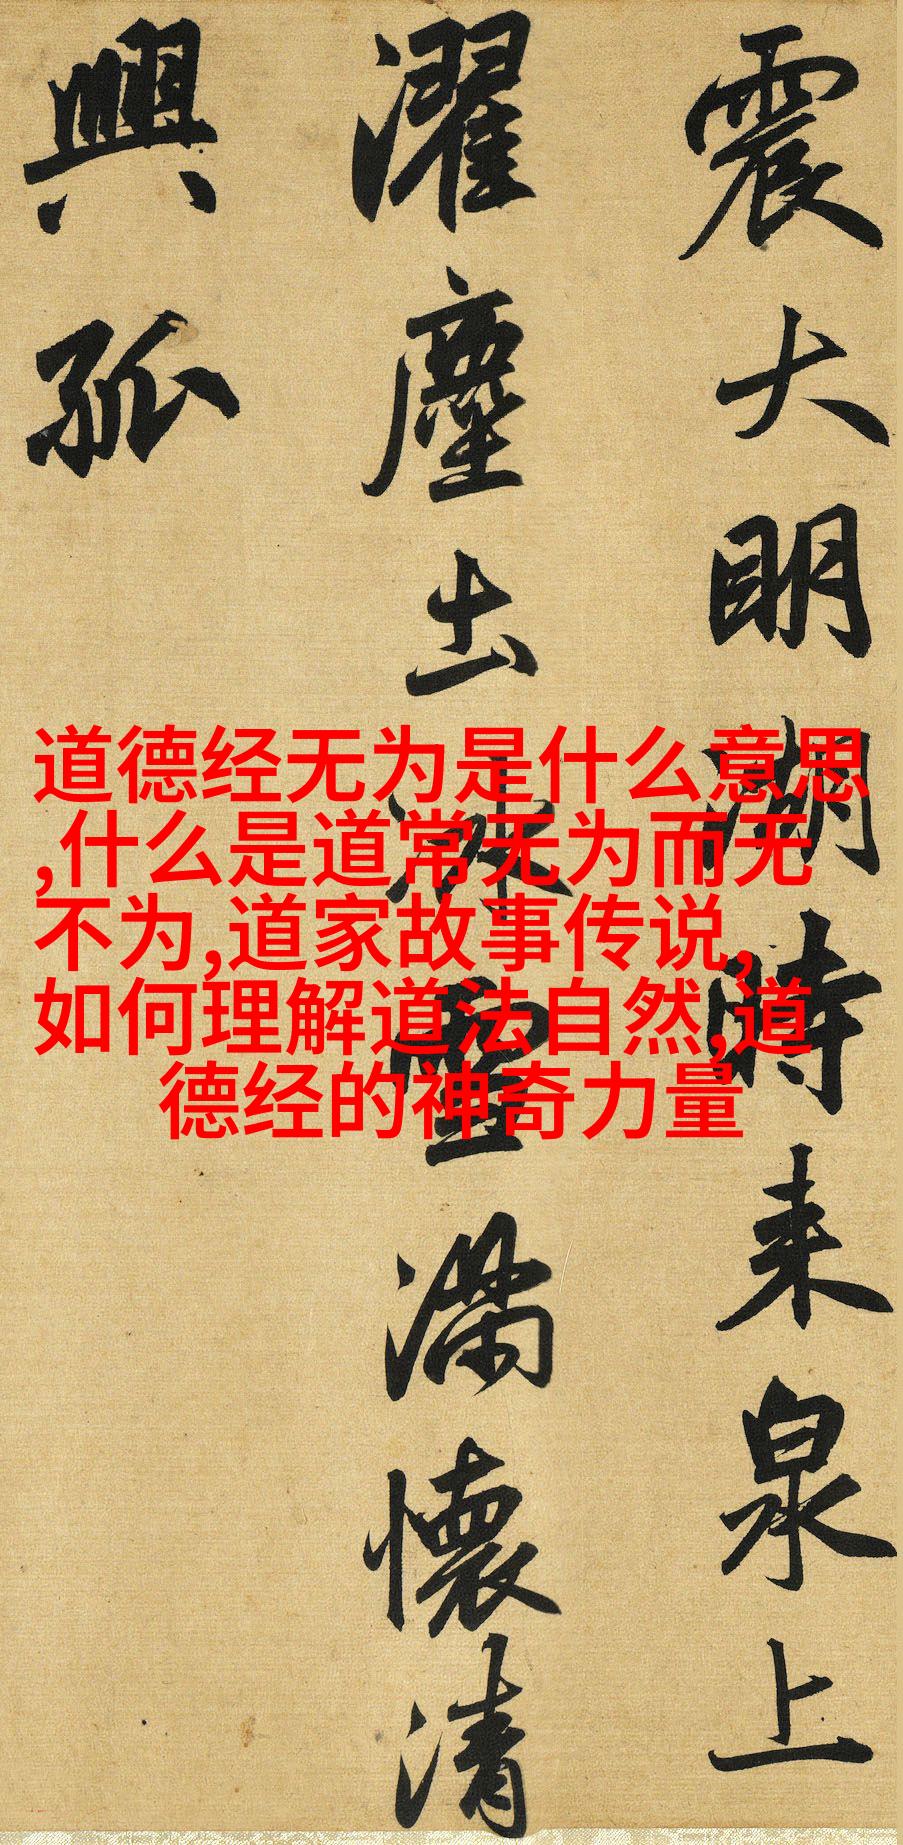 震大明湖時来泉上
濯塵出冰雪滿懷清
興孤
道德经无为是什么意思
,什么是道常无为而无
不为,道家故事传说,
如何理解道法自然,道
德经的神奇力量